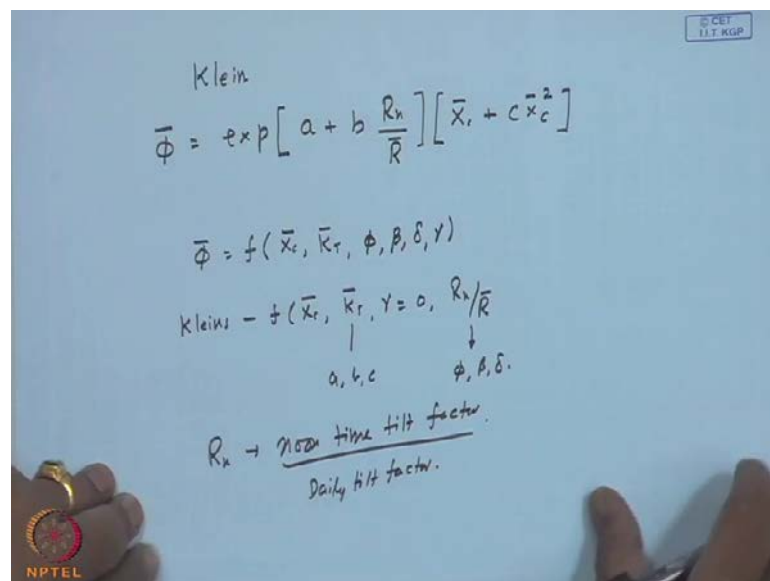 © CET
I.I.T. KGP
Klein
Φ̄ = exp[ a + b Rn/R̄ ][ X̄c + c X̄c² ]
Φ̄ = f( X̄c, K̄T, φ, β, δ, γ)
Kleins - f( X̄c, K̄T, γ = 0, Rn/R̄
a, b, c φ, β, δ.
Rn → noon time tilt factor.
Daily tilt factor.
NPTEL